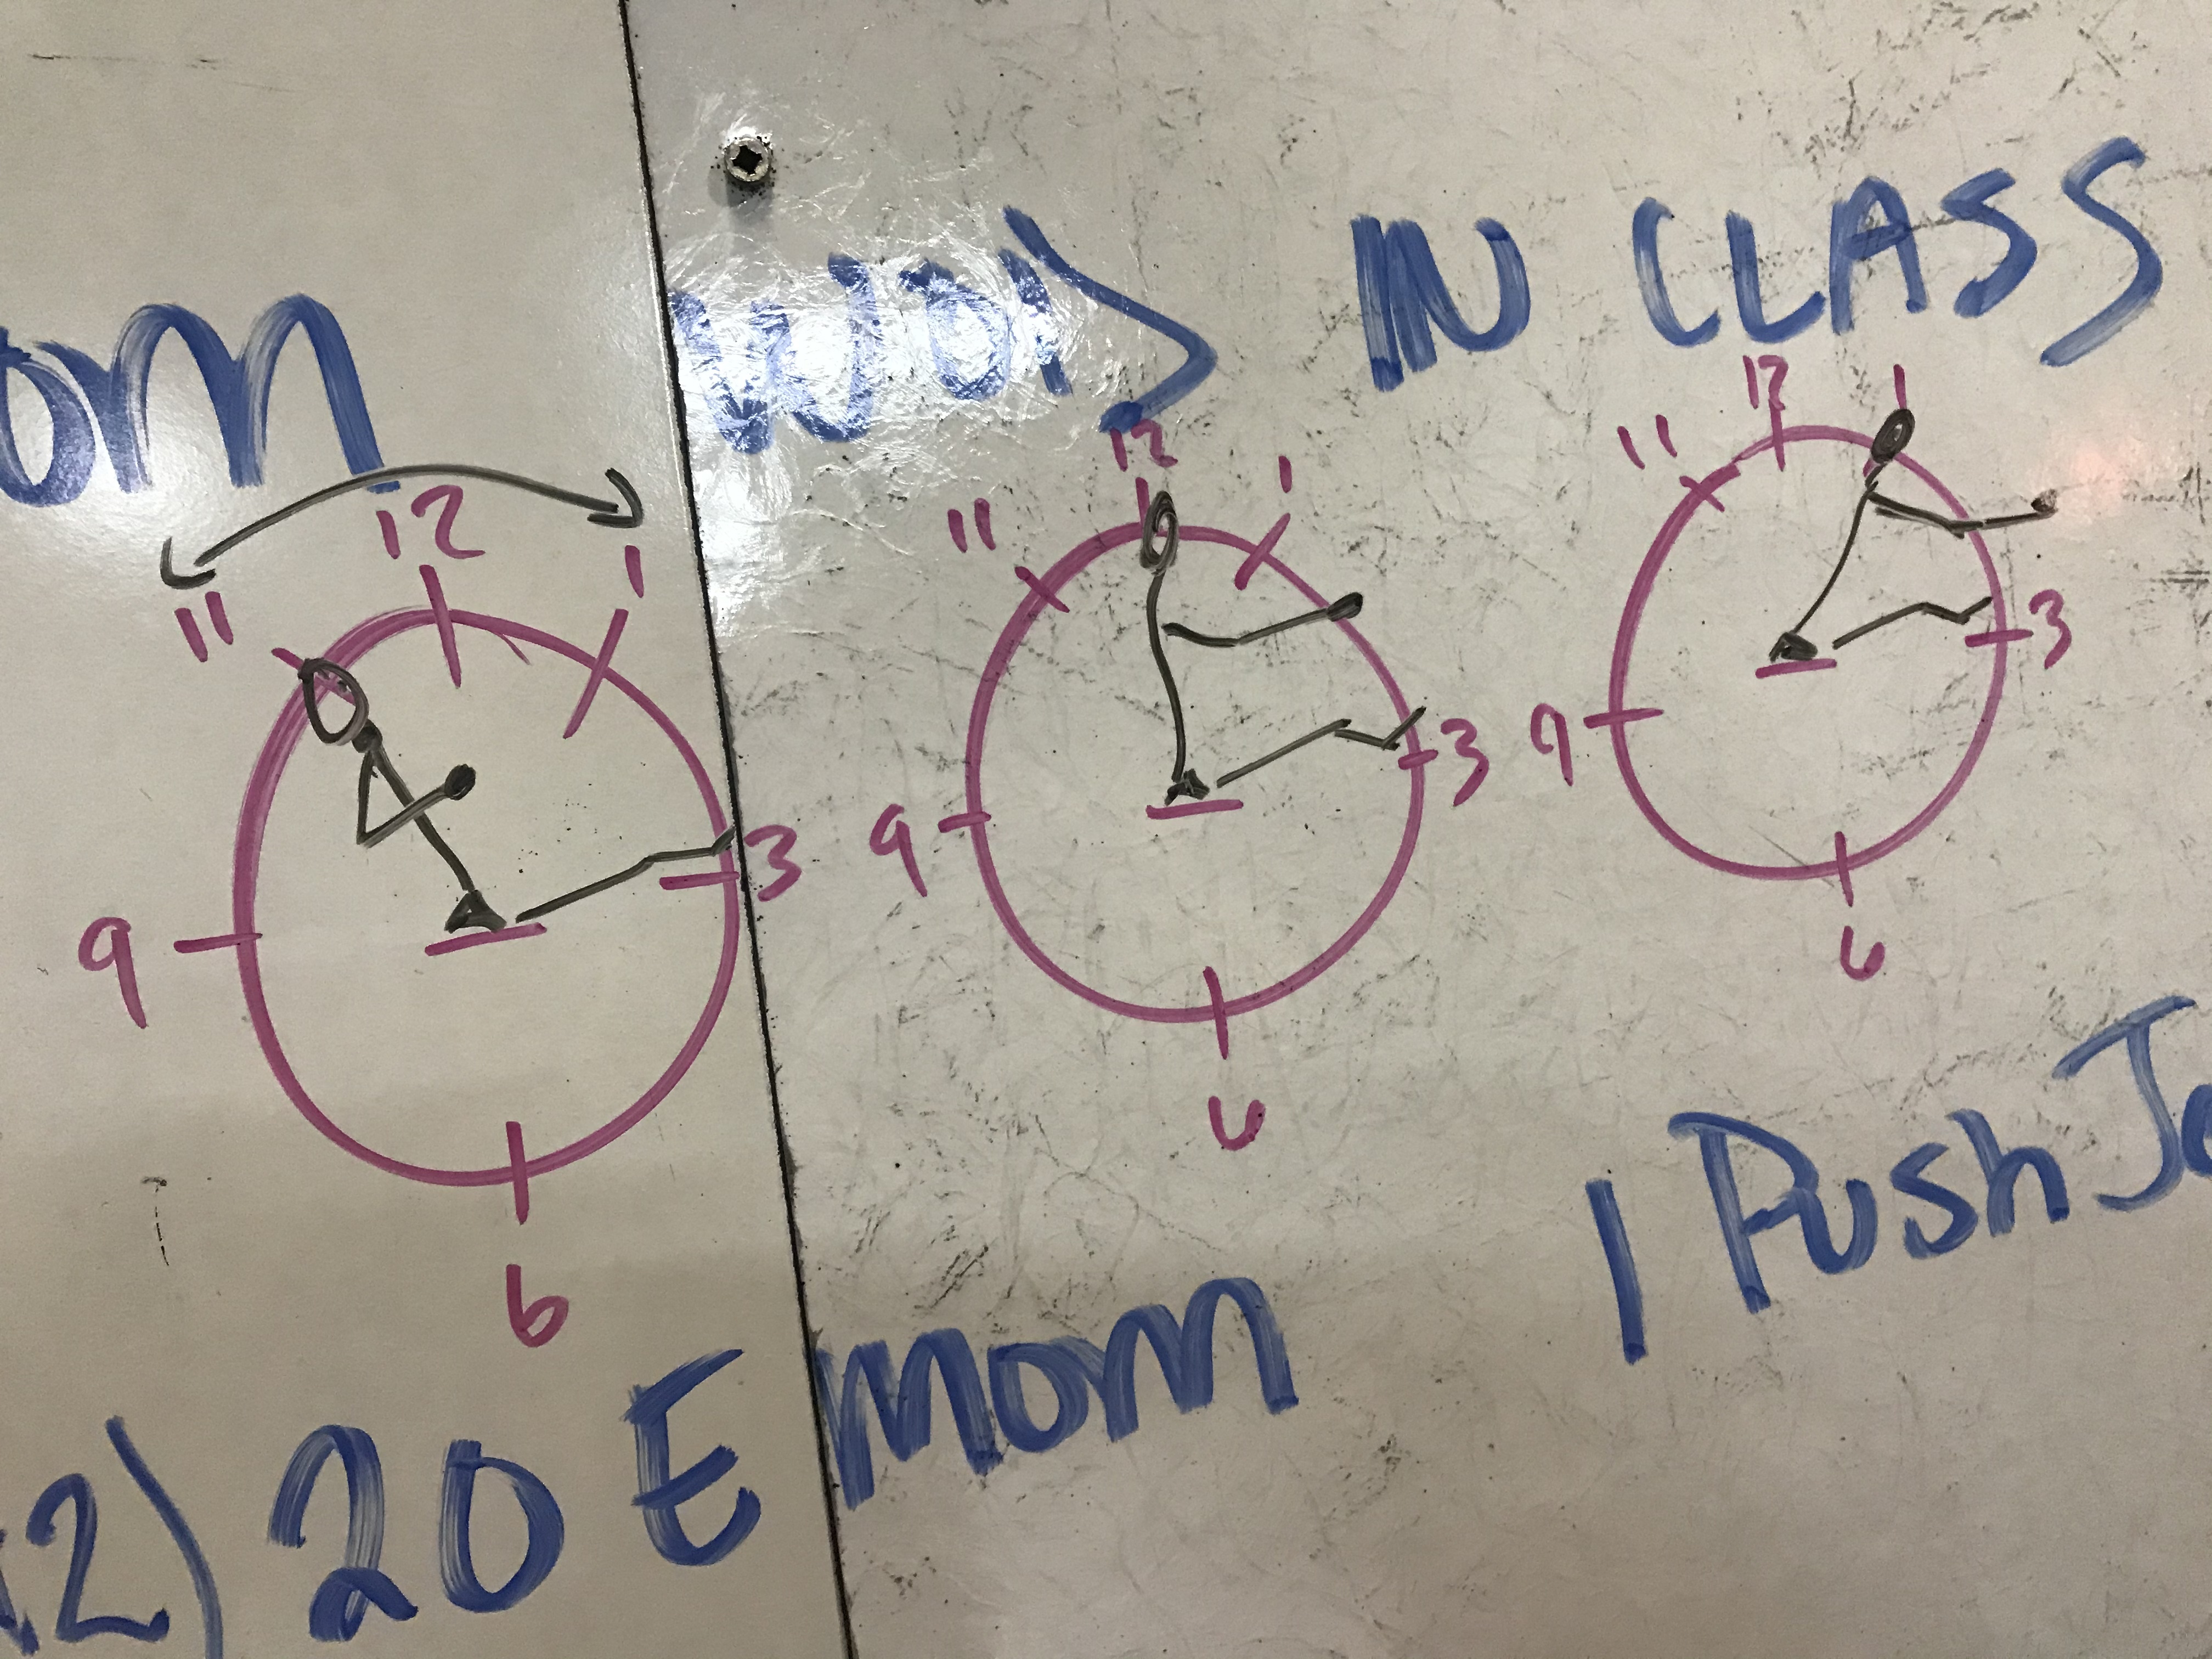 om WODS IN CLASS
11 12 1
3
6
9
11 12 1
3
6
9
11 12 1
3
6
9
1 Push Je
2) 20 Emom